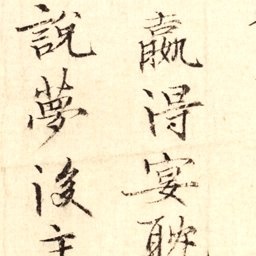 嬴得宴耽
說夢後主